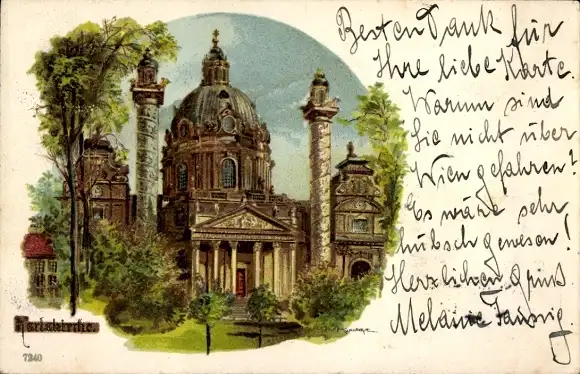 Besten Dank für
Ihre liebe Karte.
Warum sind
Sie nicht über
Wien gefahren?
Es wäre sehr
hübsch gewesen!
Herzlichen Gruß
Melanie Taussig
Karlskirche.
7240